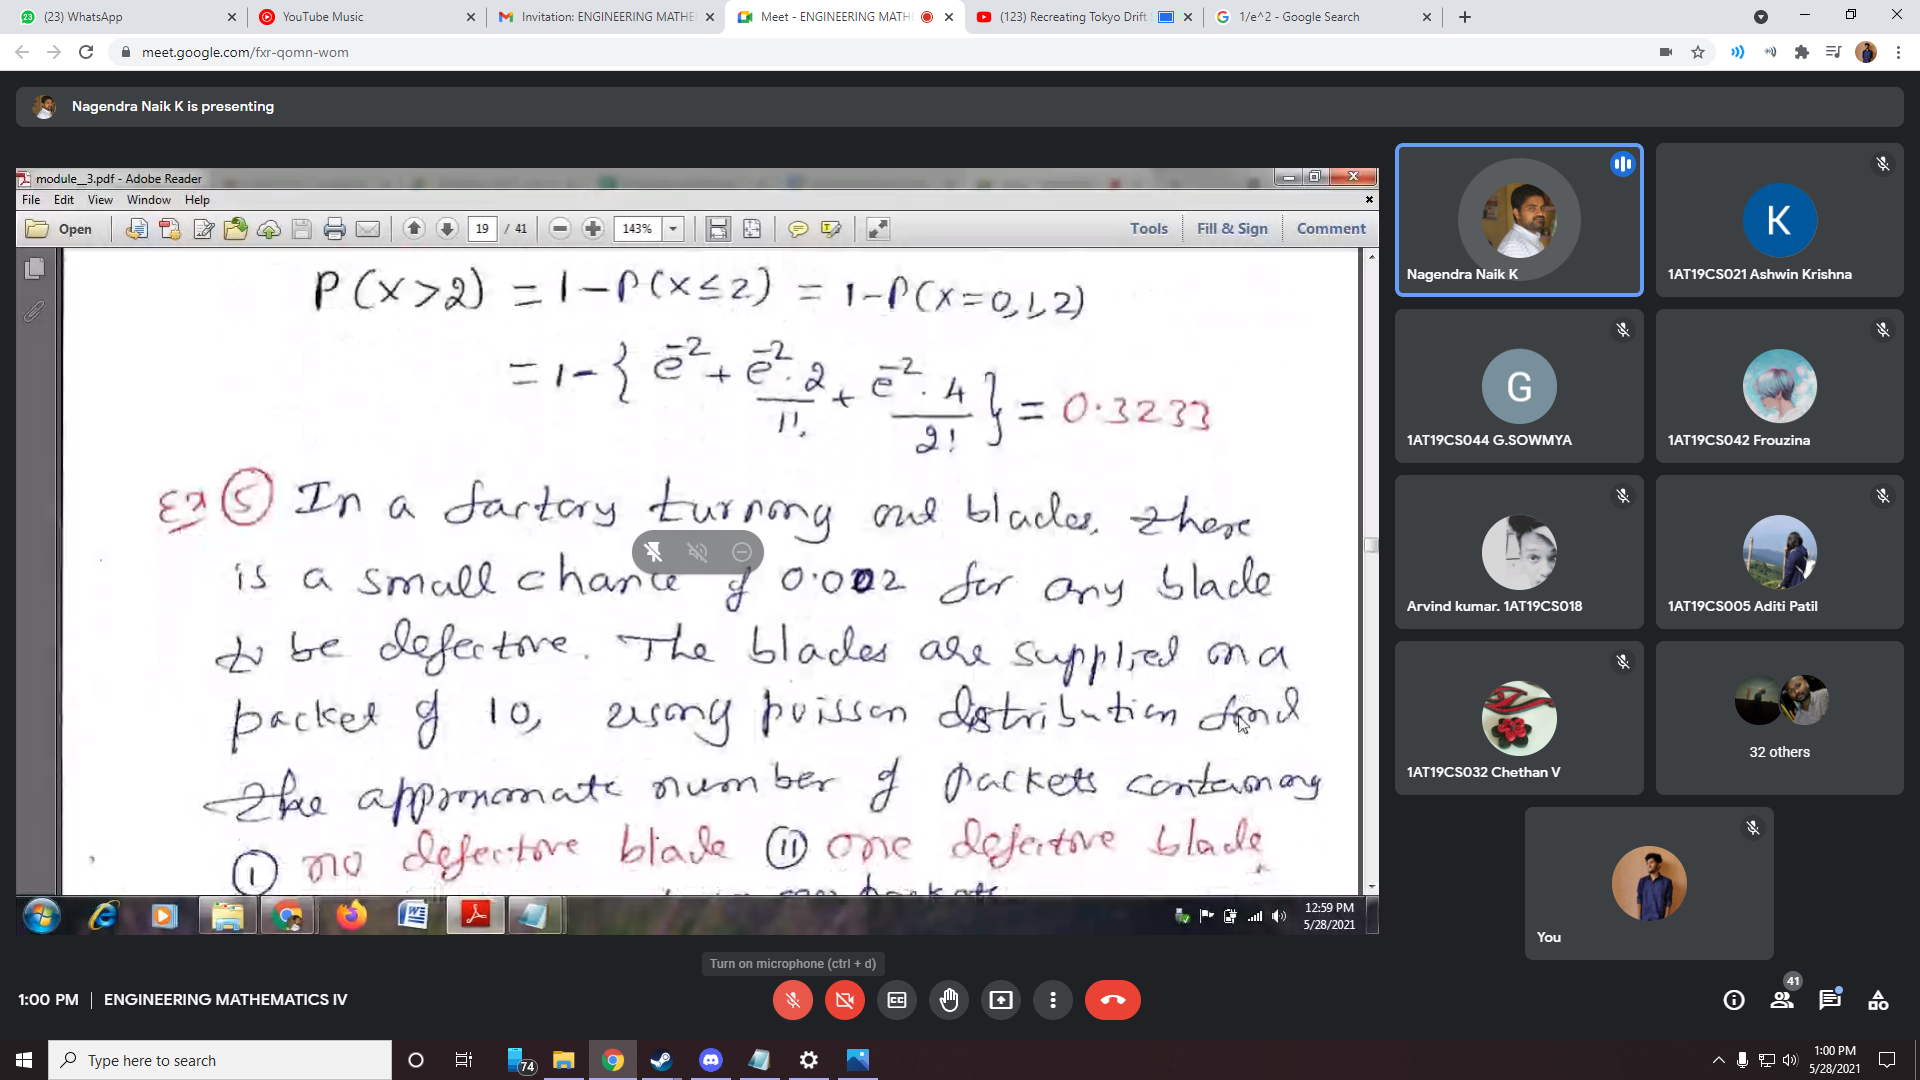 (23) WhatsApp
YouTube Music
Invitation: ENGINEERING MATHE
Meet - ENGINEERING MATH
(123) Recreating Tokyo Drift
1/e^2 - Google Search
meet.google.com/fxr-qomn-wom
Nagendra Naik K is presenting
module__3.pdf - Adobe Reader
File Edit View Window Help
Open 19 / 41 143% Tools Fill & Sign Comment
P(x>2) = 1-P(x≤2) = 1-P(x=0,1,2)
= 1- { e^-2 + e^-2 . 2 / 1! + e^-2 . 4 / 2! } = 0.3233
Ex 5 In a factory turning out blades, there
is a small chance of 0.002 for any blade
to be defective. The blades are supplied in a
packet of 10, using poisson distribution find
the approximate number of packets containing
(i) no defective blade (ii) one defective blade
12:59 PM
5/28/2021
Nagendra Naik K
1AT19CS021 Ashwin Krishna
K
G
1AT19CS044 G.SOWMYA
1AT19CS042 Frouzina
Arvind kumar. 1AT19CS018
1AT19CS005 Aditi Patil
1AT19CS032 Chethan V
32 others
You
Turn on microphone (ctrl + d)
1:00 PM | ENGINEERING MATHEMATICS IV
41
Type here to search
74
1:00 PM
5/28/2021